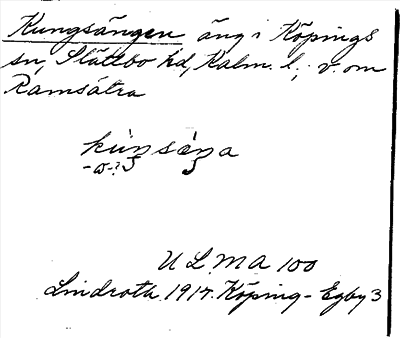 Kungsängen äng i Köpings
sn, Slättbo hd, Kalm. l.; v. om
Ramsätra
kùŋsæŋa
ULMA 100
Lindroth 1914. Köping-Egby 3